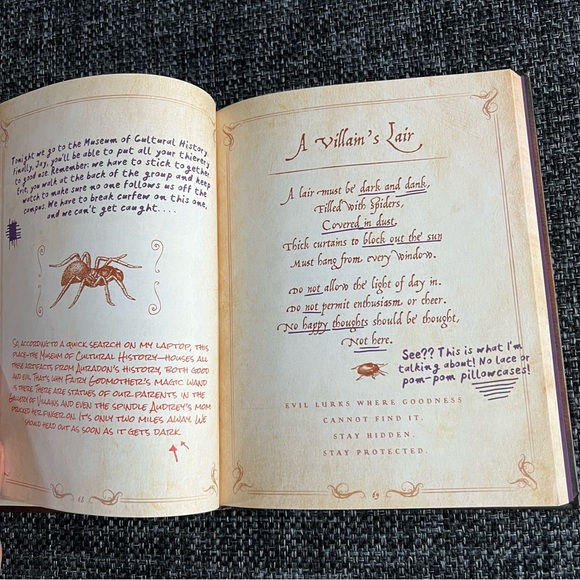 Tonight we go to the Museum of Cultural History.
Finally, Jay, you'll be able to put all your thievery
to good use. Remember: we have to stick together.
Evie, you walk at the back of the group and keep
watch to make sure no one follows us off the
campus. We have to break curfew on this one,
and we can't get caught. . . .
So, according to a quick search on my laptop, this
place—the Museum of Cultural History—houses all
these artifacts from Auradon's history, both good
and evil. That's why Fairy Godmother's magic wand
is there. There are statues of our parents in the
Gallery of Villains and even the spindle Audrey's mom
pricked her finger on. It's only two miles away. We
should head out as soon as it gets dark.
A Villain's Lair
A lair must be dark and dank,
Filled with spiders,
Covered in dust,
Thick curtains to block out the sun
Must hang from every window.
Do not allow the light of day in.
Do not permit enthusiasm or cheer.
No happy thoughts should be thought,
Not here.
See?? This is what I'm
talking about! No lace or
pom-pom pillowcases!
EVIL LURKS WHERE GOODNESS
CANNOT FIND IT.
STAY HIDDEN.
STAY PROTECTED.